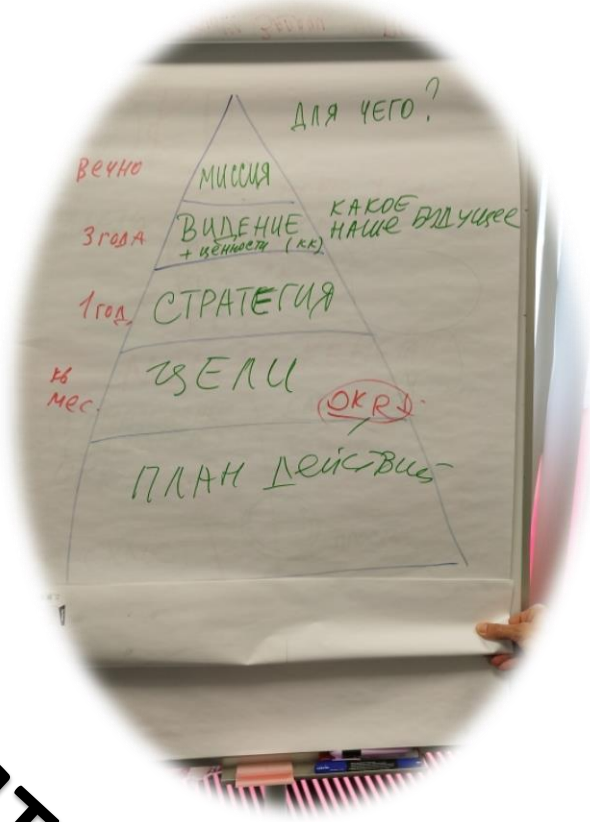 ДЛЯ ЧЕГО?
Вечно
МИССИЯ
3 года
ВИДЕНИЕ
+ ценности (КК)
КАКОЕ
НАШЕ БУДУЩЕЕ
1 год
СТРАТЕГИЯ
кв
мес.
ЦЕЛИ
OKR
ПЛАН действий